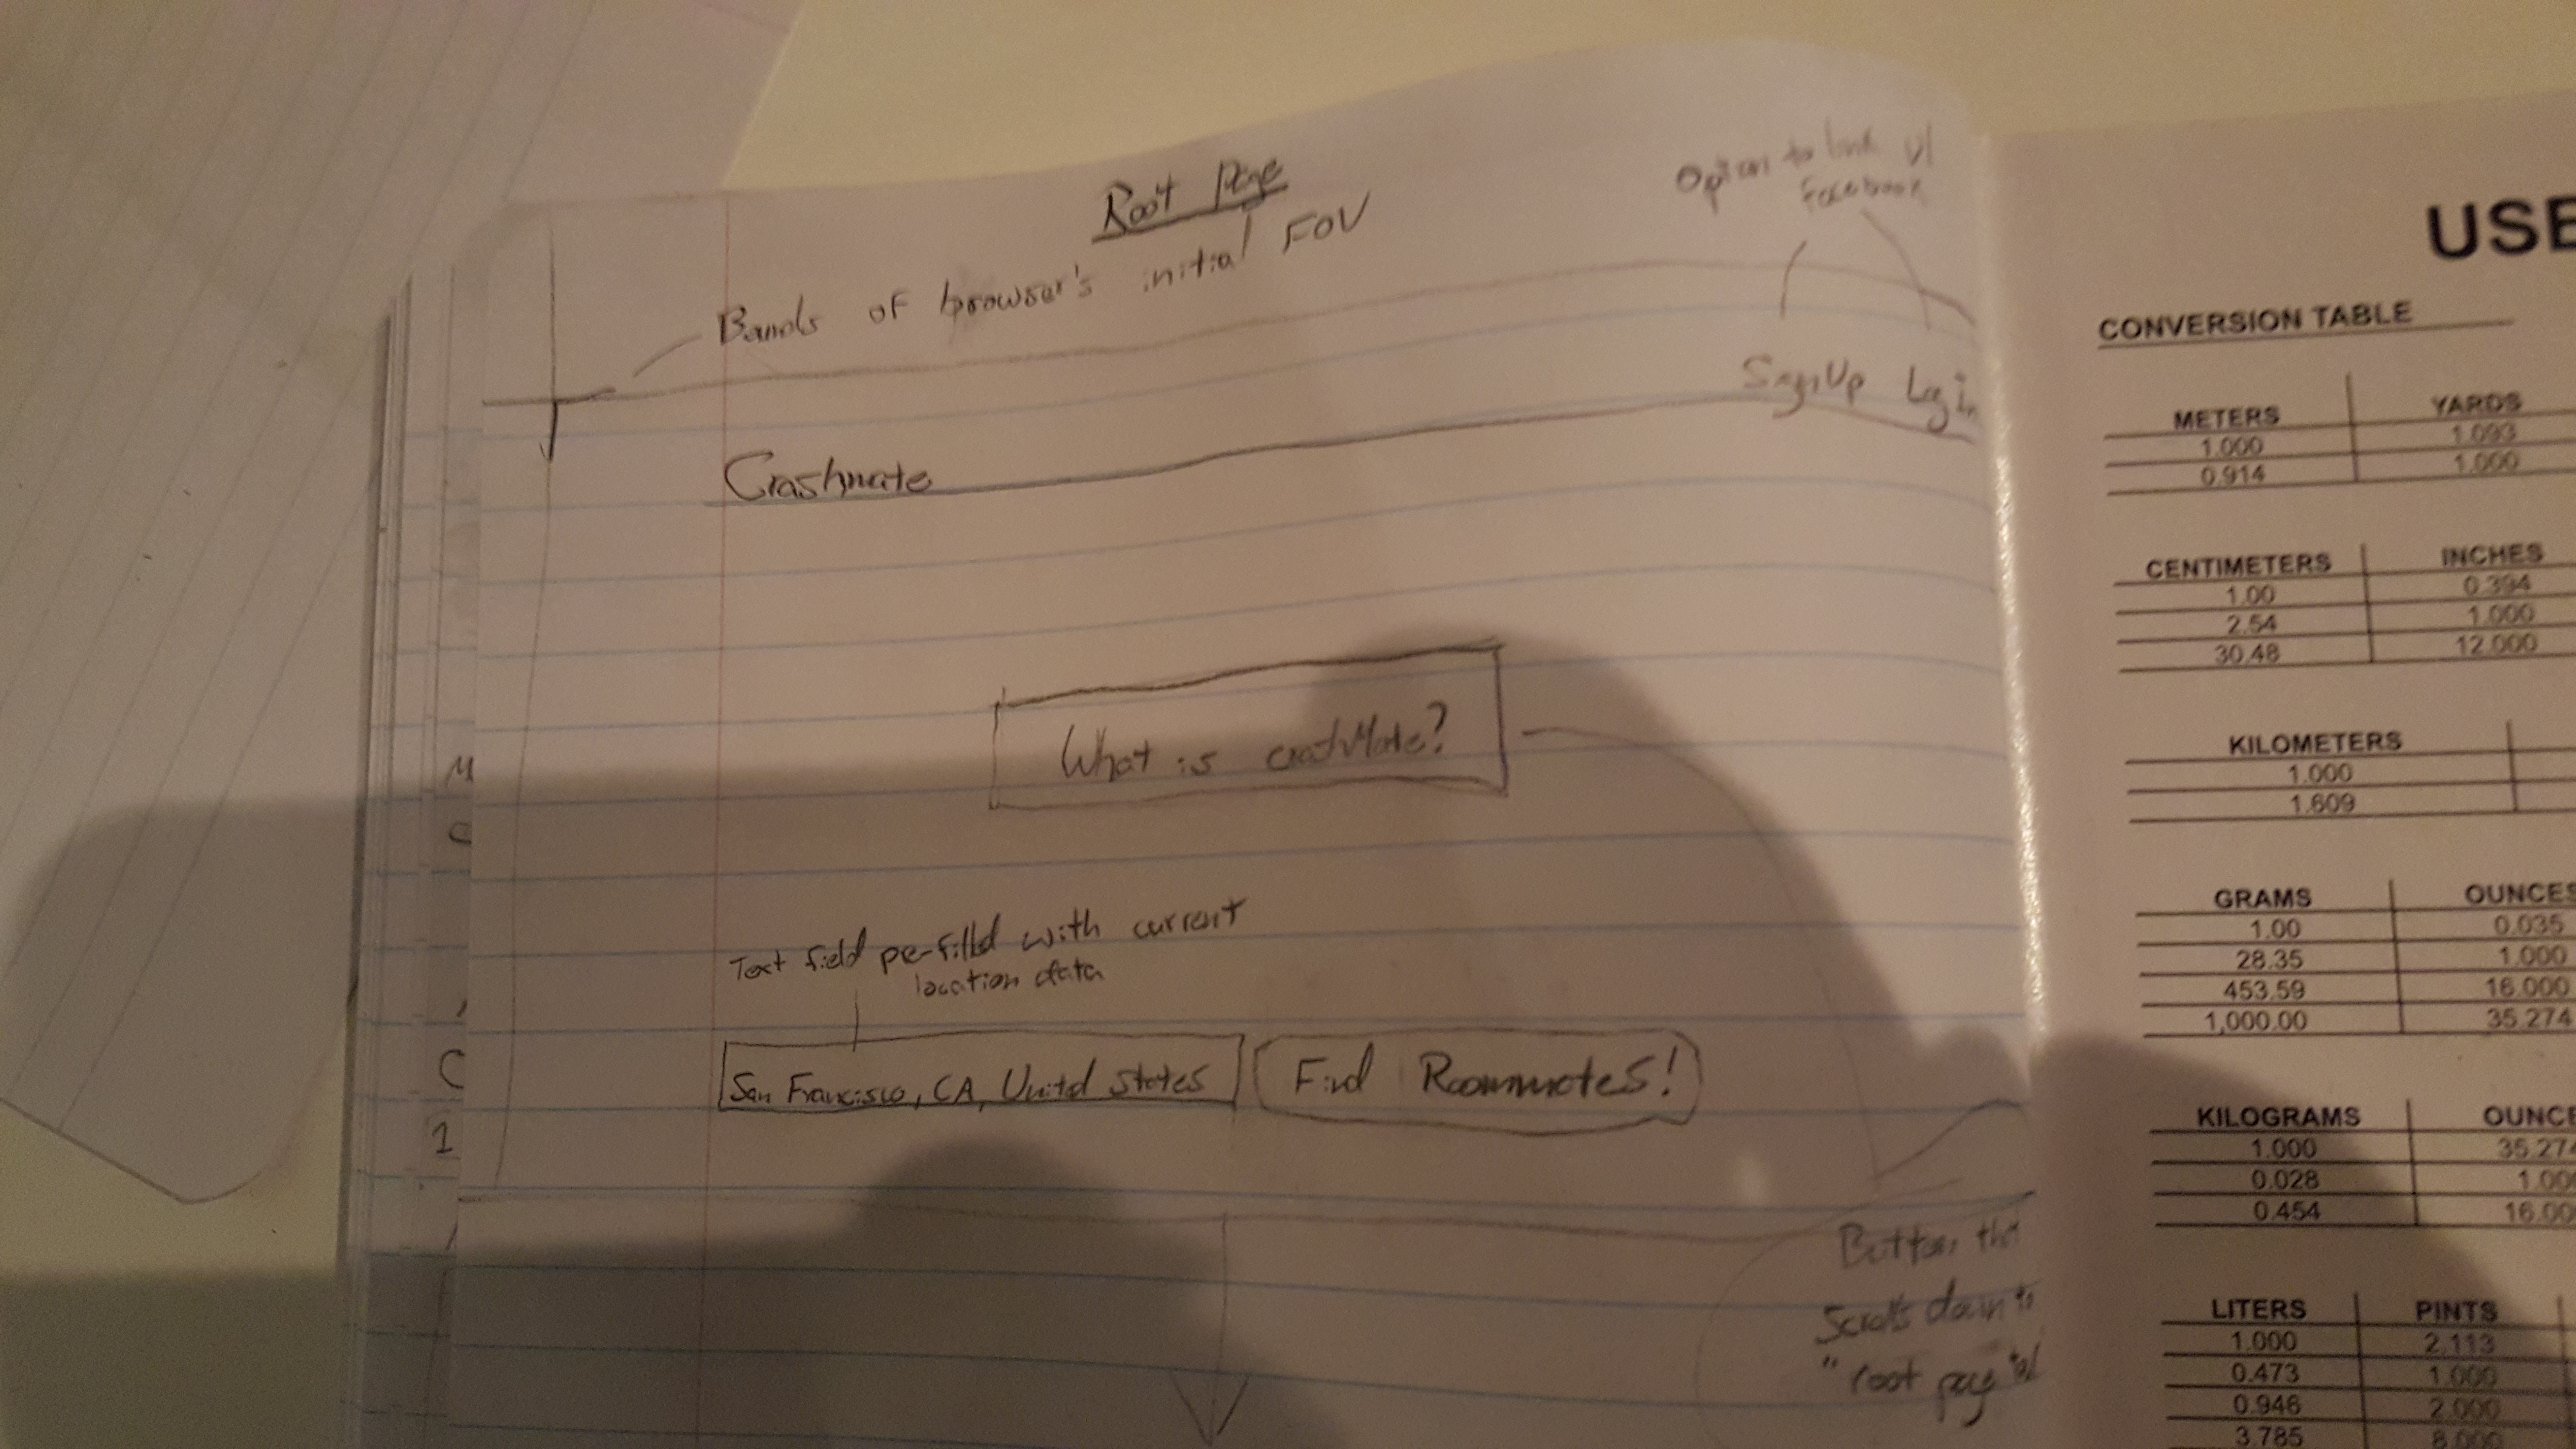 Root Page
Option to link w/
facebook
Bands of browser's initial FOV
SignUp Login
Crashmate
What is crashMate?
Text field pe-filled with current
location data
San Francisco, CA, United States
Find Roommates!
Button that
Scrolls down to
"root page
M
C
C
1
USE
CONVERSION TABLE
METERS YARDS
1.000 1.093
0.914 1.000
CENTIMETERS INCHES
1.00 0.394
2.54 1.000
30.48 12.000
KILOMETERS
1.000
1.609
GRAMS OUNCES
1.00 0.035
28.35 1.000
453.59 16.000
1,000.00 35.274
KILOGRAMS OUNCE
1.000 35.274
0.028 1.00
0.454 16.00
LITERS PINTS
1.000 2.113
0.473 1.000
0.946 2.000
3.785 8.000